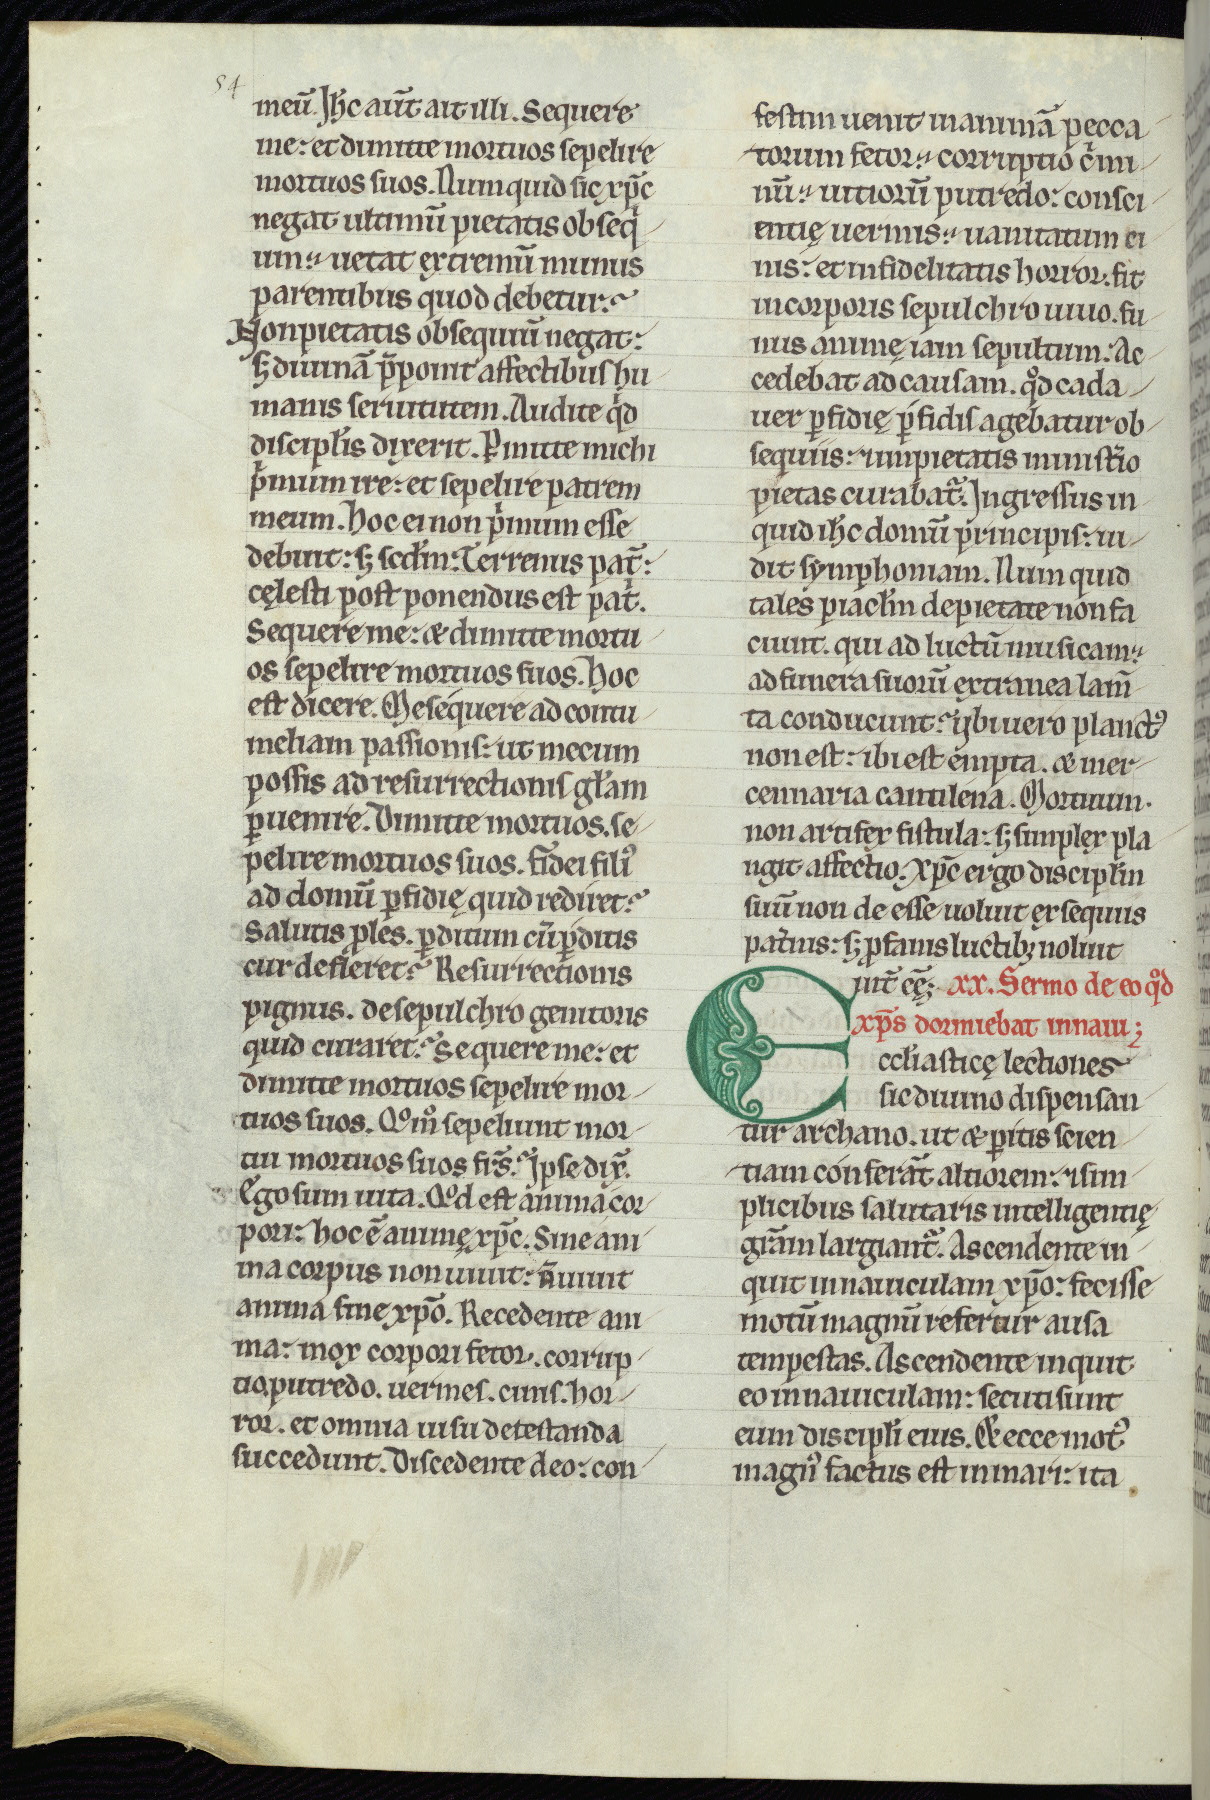 54
meū. Jħc aūt ait illi. Sequere
me: et dimitte mortuos sepelire
mortuos suos. Numquid sic xp̄c
negat ultimū pietatis obseq
um: uetat extremū munus
parentibus quod debetur?
Non pietatis obsequiū negat:
ꝫ diuinā p̄ponit affectibus hu
manis seruitutem. Audite qͥd
discipl̄s dixerit. Ꝑmitte michi
pͥmum ire: et sepelire patrem
meum. Hoc ei non pͥmum esse
debuit: ꝫ scd̄m: Terrenus pat̄:
cęlesti post ponendus est patͥ.
Sequere me: & dimitte mortu
os sepelire mortuos suos. Hoc
est dicere. Me sequere ad contu
meliam passionis: ut mecum
possis ad resurrectionis gl̄am
ꝑuenire. Dimitte mortuos. se
pelire mortuos suos. fidei filiꝰ
ad domū ꝑfidię quid rediret?
Salutis ꝓles. ꝑditum cū ꝑditis
cur defleret? Resurrectionis
pignus. de sepulchro genitoris
quid curaret? Sequere me: et
dimitte mortuos sepelire mor
tuos suos. Qͦm̄ sepeliunt mor
tui mortuos suos fr̄s? Jpse dix̄.
Ego sum uita. Qͦd est anima cor
pori: hoc ē animę xp̄c. Sine ani
ma corpus non uiuit: n̄ uiuit
anima sine xp̄o. Recedente ani
ma: mox corpori fetor. corrup
tio. putredo. uermes. cinis. hor
ror. et omnia uisu detestanda
succedunt. Discedente deo: con
festim uenit in animā pecca
torum fetor: corruptio cͥmi
nū: uitiorū putredo: consci
entię uermis: uanitatum ci
nis: et infidelitatis horror. fit
in corporis sepulchro uiuo. fu
nus animę iam sepultum. Ac
cedebat ad causam. qͦd cada
uer ꝑfidię ꝑfidis agebatur ob
sequiis: impietatis ministͥo
pietas curabat̄. Jngressus in
quid iħc domū principis: ui
dit symphoniam. Numquid
tales piacl̄m de pietate non fa
ciunt. qui ad luctū musicam:
ad funera suorū extranea lam̄
ta conducunt? Vbi uero planctꝰ
non est: ibi est empta. & mer
cennaria cantilena. Mortuum.
non artifex fistula: ꝫ simplex pla
ngit affectio. Xp̄c ergo discipl̄m
suū non de esse uoluit exsequiis
pat̄nis: ꝫ ꝓfanis luctibꝫ noluit
int̄ eē; xx. Sermo de eo qͦd
xp̄s dormiebat in naui;
Eccl̄iasticę lectiones
sic diuino dispensan
tur archano. ut & ꝑitis scien
tiam conferāt altiorem: & sim
plicibus salutaris intelligentię
gr̄am largiant̄. Ascendente in
quit in nauiculam xp̄o: fecisse
motū magnū refertur ausa
tempestas. Ascendente inquit
eo in nauiculam: secuti sunt
eum discipl̄i eius. & ecce motꝰ
magnꝰ factus est in mari: ita